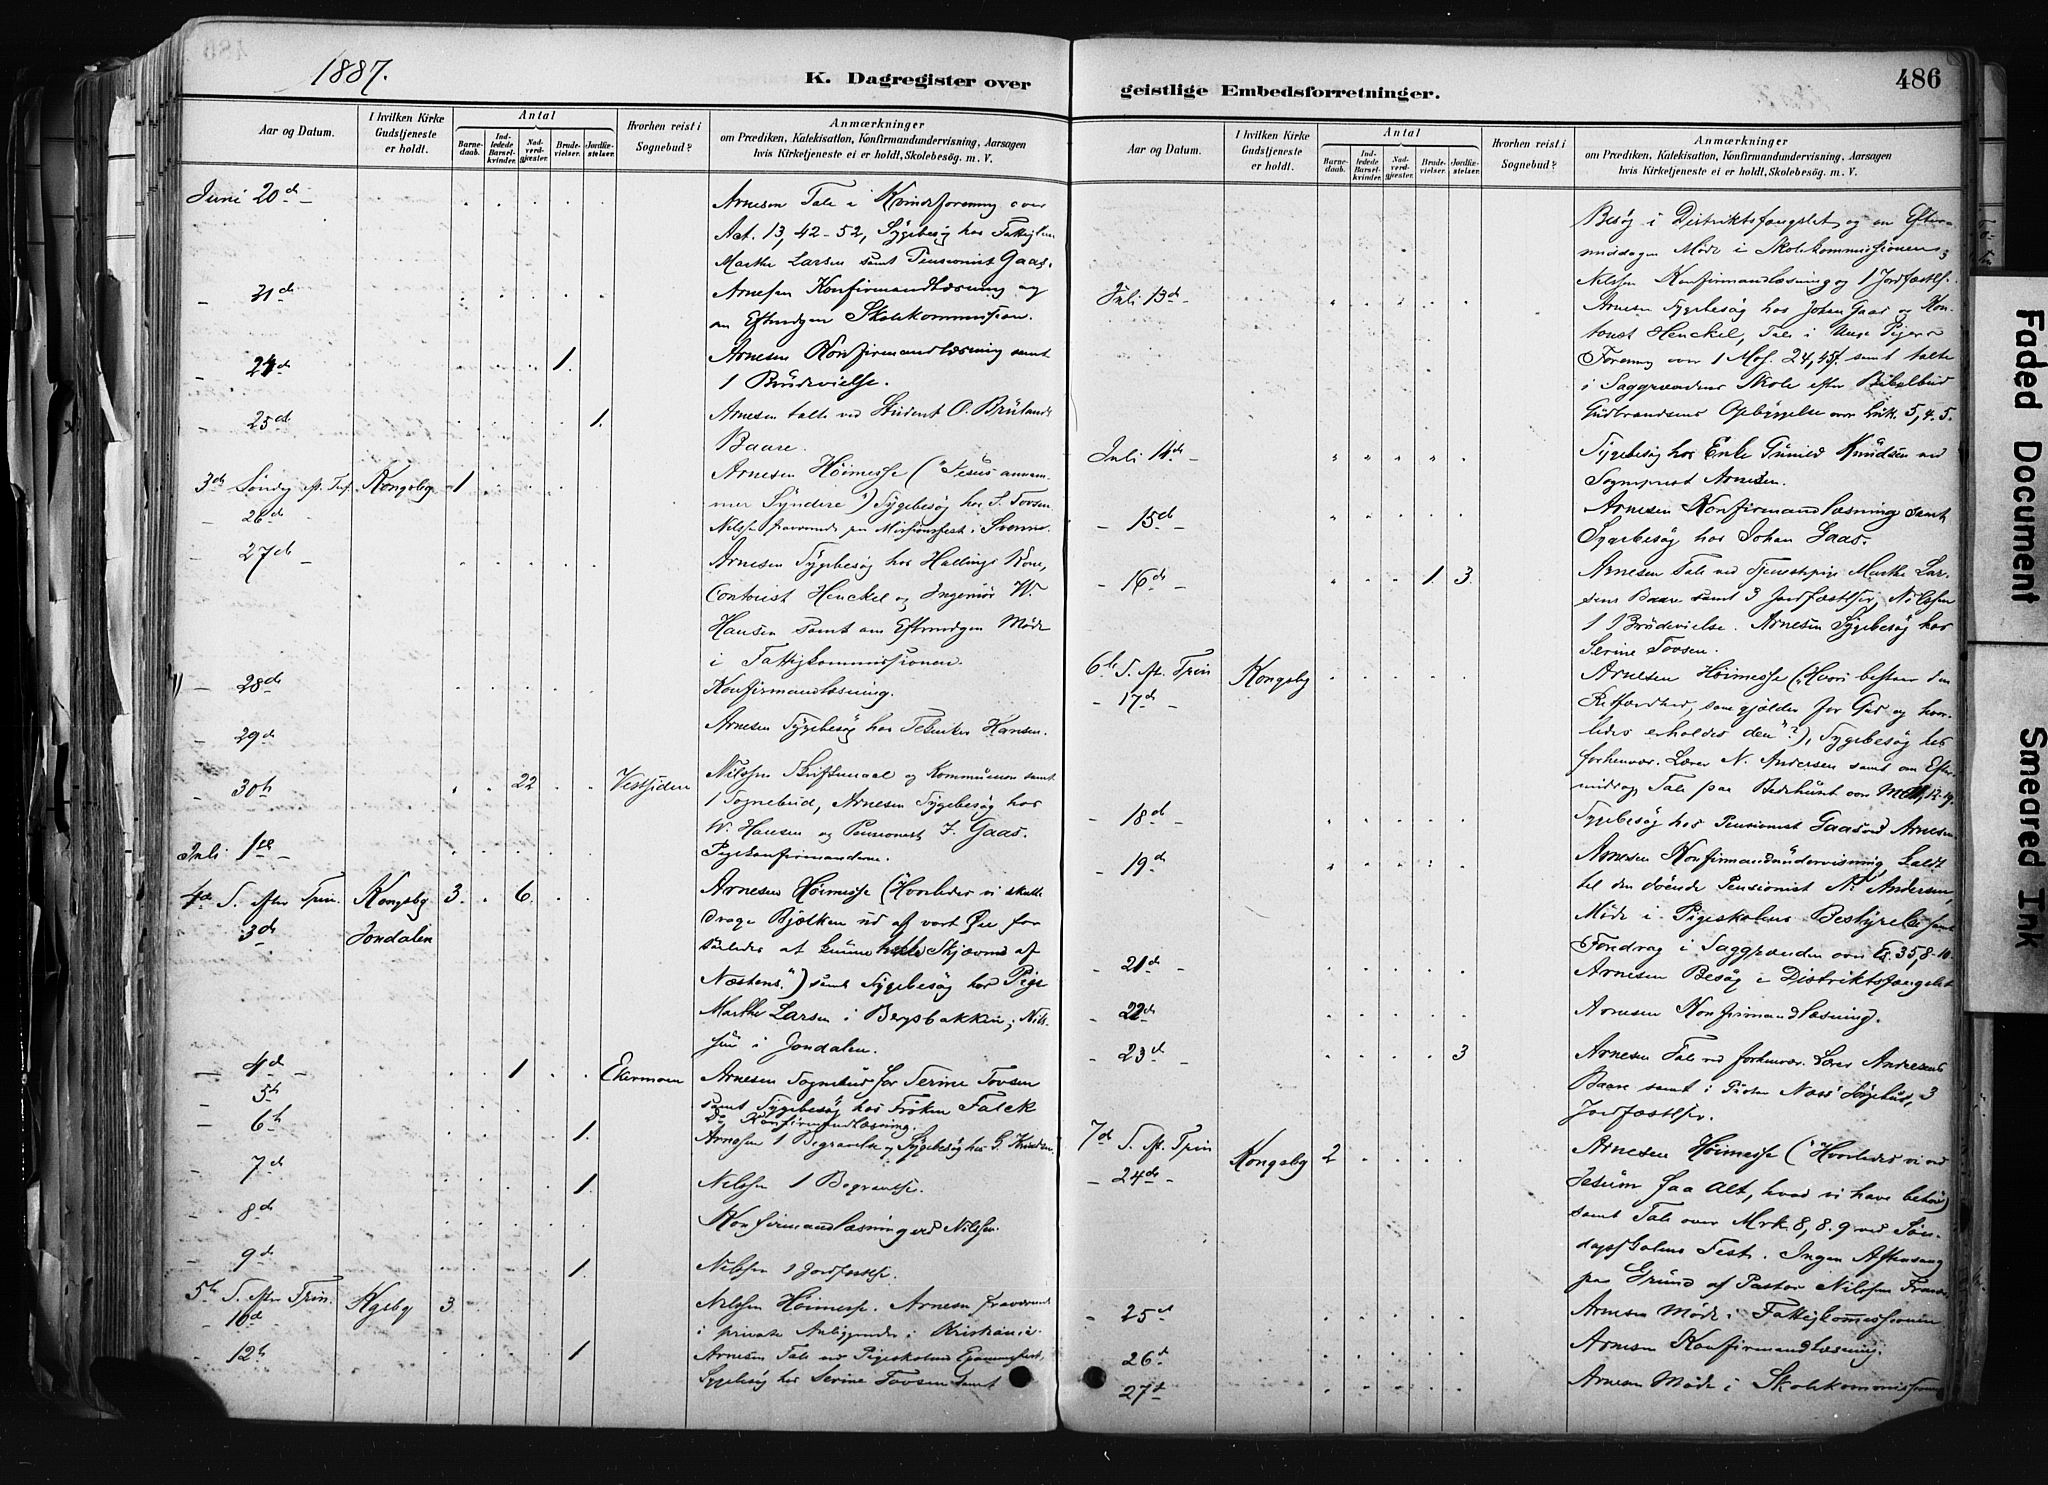 1887.
K. Dagregister over
geistlige Embedsforretninger.
486
Aar og Datum.
I hvilken Kirke Gudstjeneste er holdt.
Antal
Barnedaab.
Indledede Barselkvinder.
Nadverdgjester.
Brudevielser.
Jordfæstelser.
Hvorhen reist i Sognebud?
Anmærkninger
om Prædiken, Katekisation, Konfirmandundervisning, Aarsagen
hvis Kirketjeneste ei er holdt, Skolebesøg. m. V.
Juni 20de
Arnesen Tale i Kvindeforening over
Act. 13, 42-52, Sygebesøg hos
Marthe Larsen samt Pensionist Gaas.
21de
Arnesen Konfirmandlæsning og
om Skolekommission.
24de 1.
Arnesen Konfirmandlæsning samt
1 Brudevielse.
25de 1.
Arnesen talte ved Student O.
Baare.
3die Søndag eft. Trf. Kongsbg 1
Arnesen Høimesse ("Jesus annam-
26de
mer Syndere") Sygebesøg hos S. Tovsen
27de
Arnesen Sygebesøg hos Hallings Kone,
Contorist Henckel og Ingeniør W.
Hansen samt om Eftmdgen Møde
i Fattigkommissionen.
28de
Konfirmandlæsning.
29de
Arnesen Sygebesøg hos Hansen.
30te 22 Vestsiden
Nilssen Skriftemaal og Kommunion samt
1 Sognebud, Arnesen Sygebesøg hos
W. Hansen og Pensionist J. Gaas.
Juli 1ste
Pigekonfirmanderne.
4de S. efter Trin. Kongsbg 3. 6.
Arnesen Høimesse (Hvorledes vi skulle
3de Jondalen
drage Bjelken ud af vort Øie for
saaledes at kunne Skjæven af
Næstens.") samt Sygebesøg hos Pige
Marthe Larsen i Bergsbakken; Nils-
sen i Jondalen.
4de 1 Ekermoen
Arnesen Sognebud for Serine Tovsen
5te
samt Sygebesøg hos Frøken Falck
Do Konfirmandlæsning.
6te 1.
Arnesen 1 Begravelse og Sygebesøg hos G. Knudsen
7de 1.
Nilssen 1 Begravelse.
8de
Konfirmandlæsning ved Nilssen.
9de 1.
Nilssen 1 Jordfæstelse.
5te S. efter Trin. Kgsbg 3.
Nilssen Høimesse. Arnesen fraværende
10de
i private Anliggender i Kristiania.
12te 1
Arnesen Tale ved Pigeskolens Examensfest,
Sygebesøg hos Serine Tovsen samt
Aar og Datum.
I hvilken Kirke Gudstjeneste er holdt.
Antal
Barnedaab.
Indledede Barselkvinder.
Nadverdgjester.
Brudevielser.
Jordfæstelser.
Hvorhen reist i Sognebud?
Anmærkninger
om Prædiken, Katekisation, Konfirmandundervisning, Aarsagen
hvis Kirketjeneste ei er holdt, Skolebesøg. m. V.
Besøg i Distriktsfængslet og om Efter-
middagen Møde i Skolekommissionen;
Nilssen Konfirmandlæsning og 1 Jordfæstelse.
Juli 13de
Arnesen Sygebesøg hos Johan Gaas og Kon-
torist Henckel, Tale i Unge Pigers
Forening over 1 Mos. 24, 45 samt talte
i Saggrændens Skole efter Bibelbud
Gudbrandsens Opbyggelse over Luk. 5, 4-5.
Juli 14de
Sygebesøg hos Enke Gunild Knudsen ved
Sogneprest Arnesen.
15de
Arnesen Konfirmandlæsning samt
Sygebesøg hos Johan Gaas.
16de 1. 3.
Arnesen Tale ved Tjenestepige Marthe Lar-
sens Baare samt 3 Jordfæstelser, Nilssen
1 Brudevielse. Arnesen Sygebesøg hos
Serine Tovsen.
6te S. eft. Trin Kongsbg
Arnesen Høimesse ("Hvori bestaar den
17de
Retfærdhed, som gjælder for Gud og hvor-
ledes erholdes den"?), Sygebesøg hos
forhenvær. Lærer N. Andersen samt om Efter-
middag Tale paa Bedehuset over
18de
Sygebesøg hos Pensionist Gaas ved Arnesen
19de
Arnesen Konfirmandundervisning, kaldt
til den døende Pensionist N. Andersen,
Møde i Pigeskolens Bestyrelse samt
Foredrag i Saggrænden over Es. 35, 8-10
21de
Arnesen Besøg i Distriktsfængslet
22de
Arnesen Konfirmandlæsning.
23de 3
Arnesen Tale ved forhenvær. Lærer Andersens
Baare samt i Sørgehus, 3
Jordfæstelser.
7de S. eft. Trin Kongsbg 2
Arnesen Høimesse ("Hvorledes vi ved
24de
Jesum faa Alt, hvad vi have behov)
samt Tale over Mrk. 8, 8.9 ved Søn-
dagsskolens Fest. Ingen Aftensang
paa Grund af Pastor Nilssens
25de
Arnesen Møde i Fattigkommissionen
26de
Arnesen Konfirmandlæsning.
27de
Arnesen Møde i Skolekommissionen
Faded Document
Smeared Ink